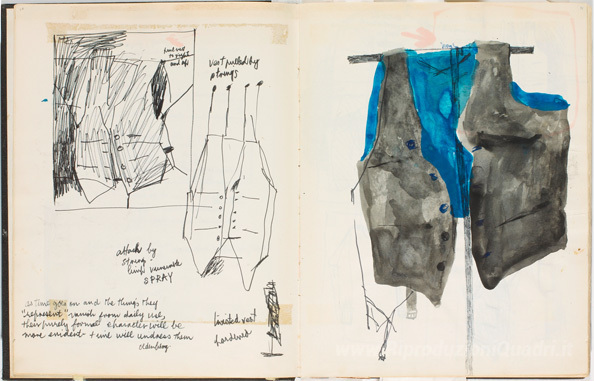 pull vest
to right
and up
vest pulled by
strings
attach by
string
SPRAY
as time goes on and the things they
"represent" vanish from daily use,
their purely formal character will be
more evident + time will undress them
Oldenburg
twisted vest